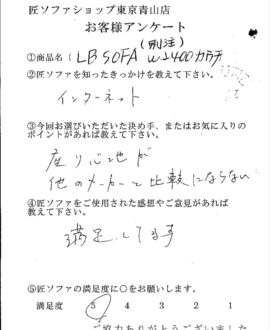 匠ソファショップ東京青山店
お客様アンケート
(別注)
①商品名(LB SOFA W2400カウチ
②匠ソファを知ったきっかけを教えて下さい。
インターネット
③今回お選びいただいた決め手、またはお気に入りの
ポイントがあれば教えて下さい。
座り心地が
他のメーカーと比較にならない
④匠ソファをご使用された感想やご意見があれば
教えて下さい。
満足してます
⑤匠ソファの満足度に○をお願いします。
満足度 5 4 3 2 1
ご協力ありがとうございました